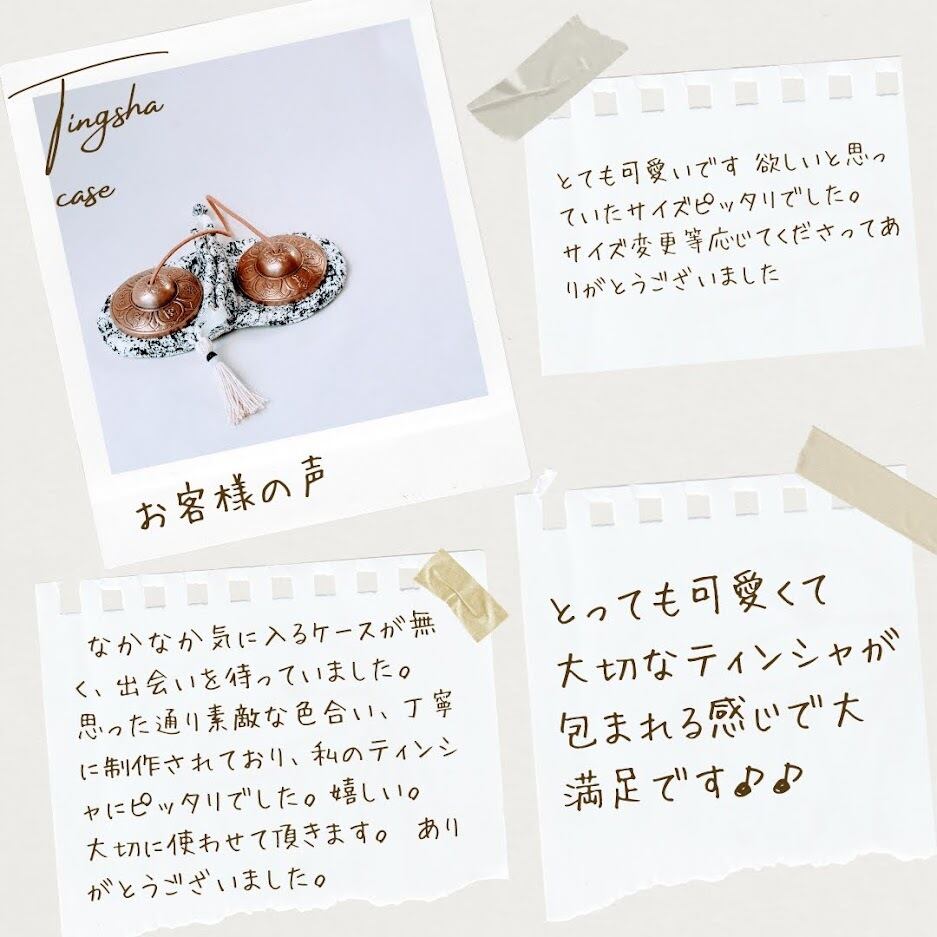 Tingsha
case
お客様の声
とても可愛いです 欲しいと思っ
ていたサイズピッタリでした。
サイズ変更等応じてくださってあ
りがとうございました
なかなか気に入るケースが無
く、出会いを待っていました。
思った通り素敵な色合い、丁寧
に制作されており、私のティンシ
ャにピッタリでした。嬉しい。
大切に使わせて頂きます。 あり
がとうございました。
とっても可愛くて
大切なティンシャが
包まれる感じで大
満足です♪♪